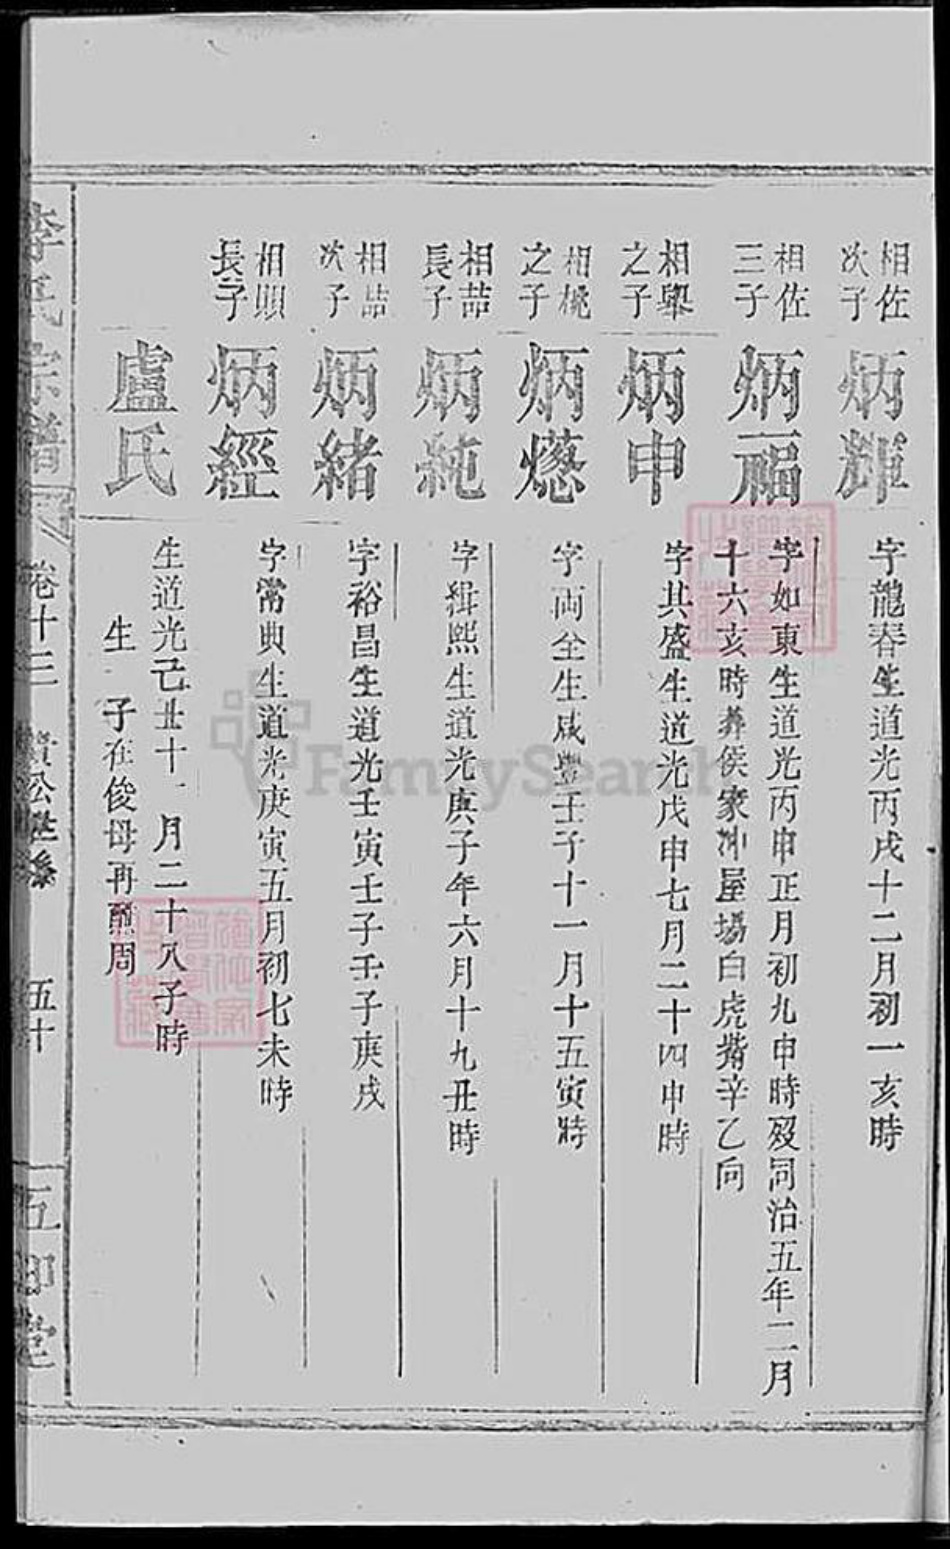 相佐
次子
炳輝
字龍春生道光丙戌十二月初一亥時
相佐
三子
炳福
字如東生道光丙申正月初九申時歿同治五年二月
十六亥時葬侯家冲屋場白虎嘴辛乙向
相舉
之子
炳申
字共盛生道光戊申七月二十四申時
相桃
之子
炳
字兩全生咸豐壬子十一月十五寅時
相喆
長子
炳純
字緝熙生道光庚子年六月十九丑時
相喆
次子
炳緒
字裕昌生道光壬寅壬子壬子庚戌
相照
長子
炳經
字常典生道光庚寅五月初七未時
盧氏
生道光己丑十一月二十八子時
生 子在俊母再醮周
李氏宗譜
卷十三
五十
五卽堂
FamilySearch